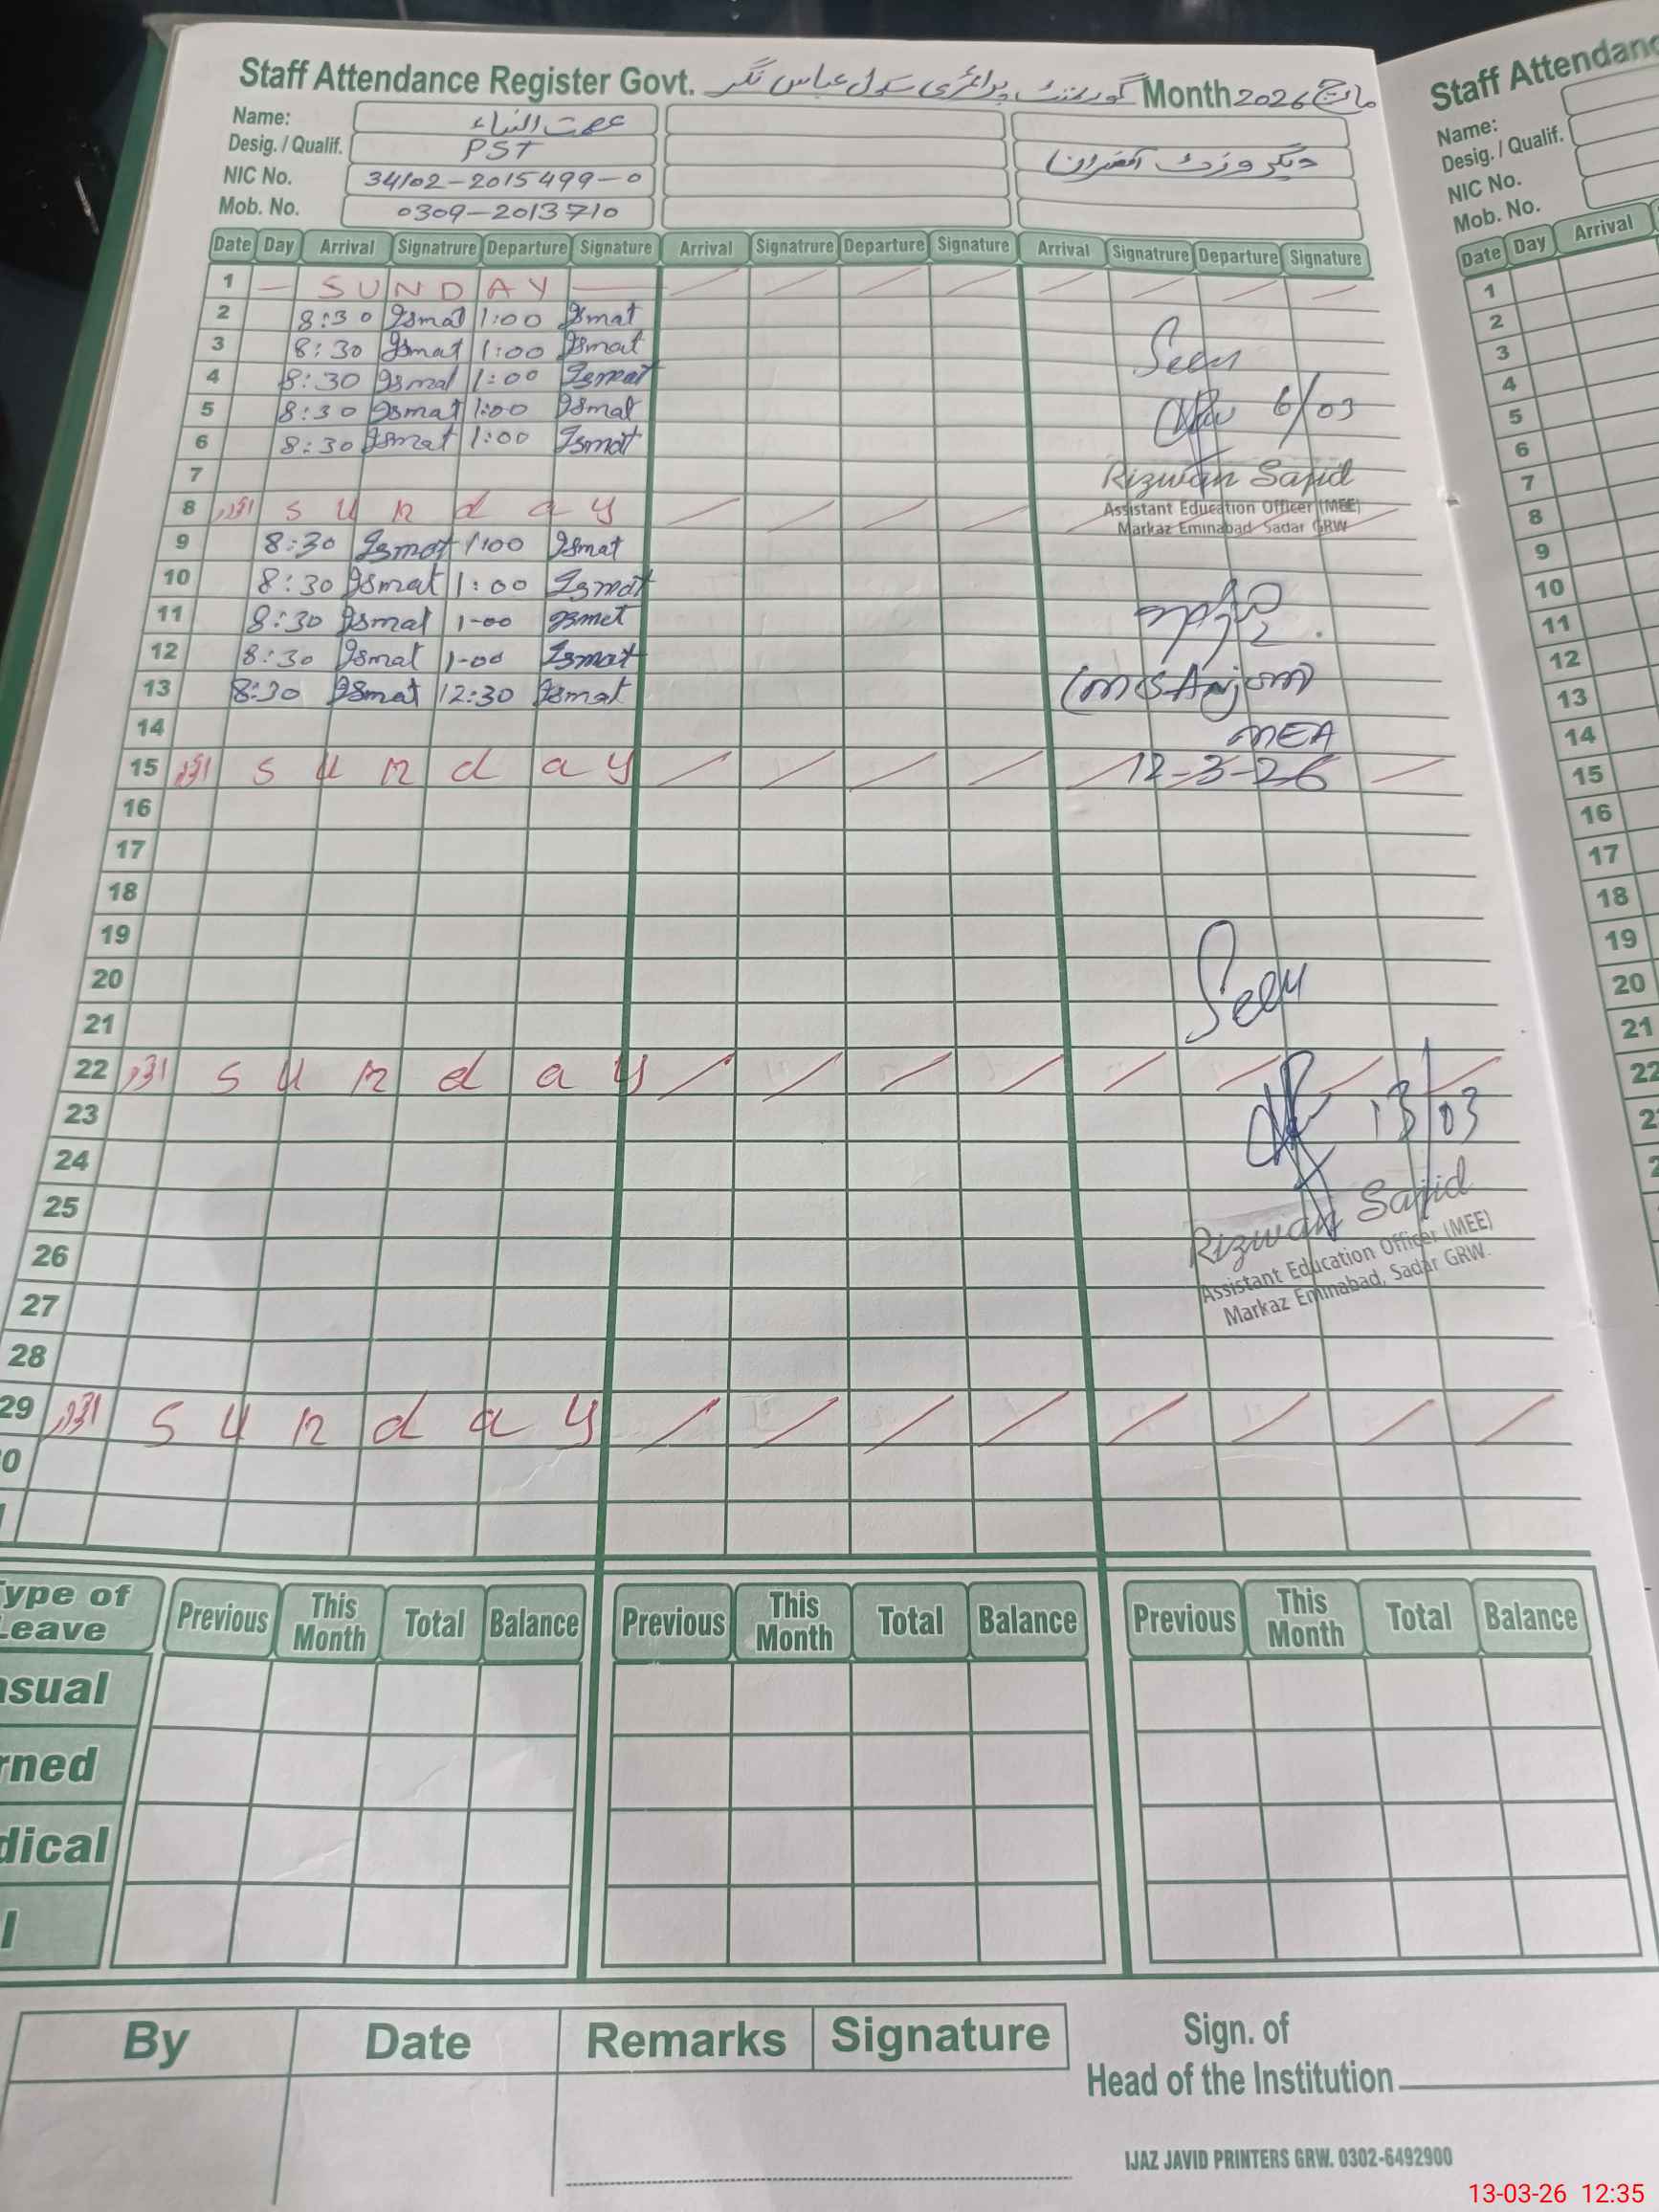 Staff Attendance Register Govt. گورنمنٹ پرائمری سکول عباس نگر Month مارچ 2026
Name: عصمت النساء
Desig. / Qualif. PST
دیگر وزٹ آفیسران
NIC No. 34102-2015499-0
Mob. No. 0309-2013710
Date Day Arrival Signatrure Departure Signature Arrival Signatrure Departure Signature Arrival Signatrure Departure Signature
1 — SUNDAY —
2 8:30 Ismat 1:00 Ismat
3 8:30 Ismat 1:00 Ismat
4 8:30 Ismat 1:00 Ismat
5 8:30 Ismat 1:00 Ismat
6 8:30 Ismat 1:00 Ismat
7
8 اتوار Sunday
9 8:30 Ismat 1:00 Ismat
10 8:30 Ismat 1:00 Ismat
11 8:30 Ismat 1-00 Ismat
12 8:30 Ismat 1-00 Ismat
13 8:30 Ismat 12:30 Ismat
14
15 اتوار Sunday
16
17
18
19
20
21
22 اتوار Sunday
23
24
25
26
27
28
29 اتوار Sunday
Seen
6/03
Rizwan Sajid
Assistant Education Officer (MEE)
Markaz Eminabad Sadar GRW
MEA
12-3-26
Seen
13/03
Rizwan Sajid
Assistant Education Officer (MEE)
Markaz Eminabad, Sadar GRW.
Previous This Month Total Balance Previous This Month Total Balance Previous This Month Total Balance
By Date Remarks Signature
Sign. of
Head of the Institution
IJAZ JAVID PRINTERS GRW. 0302-6492900
Staff Attendanc
Name:
Desig. / Qualif.
NIC No.
Mob. No.
Date Day Arrival
1
2
3
4
5
6
7
8
9
10
11
12
13
14
15
16
17
18
19
20
21
22
13-03-26 12:35